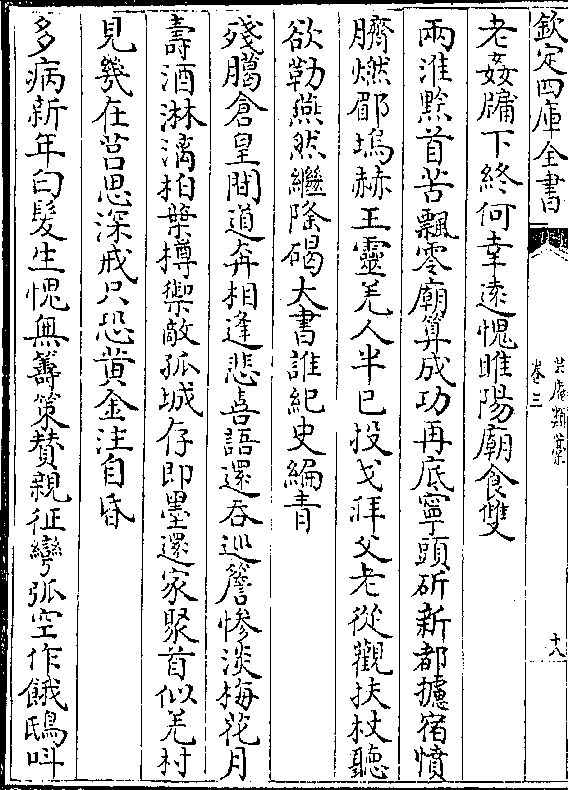 欽定四庫全書
芸庵類藁
卷三
十八
老姦牖下終何幸遠愧睢陽廟食雙
兩淮黔首苦飄零廟算成功再底寧頭斫新都攄宿憤
臍燃郿塢赫王靈羌人半已投戈拜父老從觀扶杖聽
欲勒燕然繼隆碣大書誰紀史編青
殘臈倉皇間道奔相逢悲喜語還吞巡簷慘淡梅花月
壽酒淋漓柏葉樽禦敵孤城存即墨還家聚首似羌村
見幾在莒思深戒只恐黄金注自昏
多病新年白髮生愧無籌策贊親征彎弧空作餓鴟叫